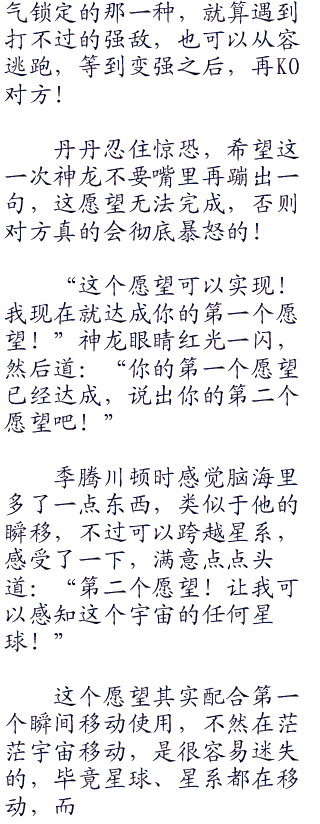 气锁定的那一种，就算遇到
打不过的强敌，也可以从容
逃跑，等到变强之后，再KO
对方！
丹丹忍住惊恐，希望这
一次神龙不要嘴里再蹦出一
句，这愿望无法完成，否则
对方真的会彻底暴怒的！
“这个愿望可以实现！
我现在就达成你的第一个愿
望！”神龙眼睛红光一闪，
然后道：“你的第一个愿望
已经达成，说出你的第二个
愿望吧！”
季腾川顿时感觉脑海里
多了一点东西，类似于他的
瞬移，不过可以跨越星系，
感受了一下，满意点点头
道：“第二个愿望！让我可
以感知这个宇宙的任何星
球！”
这个愿望其实配合第一
个瞬间移动使用，不然在茫
茫宇宙移动，是很容易迷失
的，毕竟星球、星系都在移
动，而